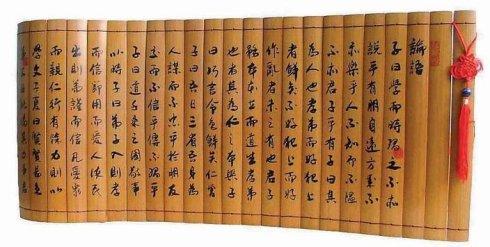 論語
子曰學而時習之不亦
說乎有朋自遠方來不
亦樂乎人不知而不慍
不亦君子乎有子曰其
為人也孝弟而好犯上
者鮮矣不好犯上而好
作亂者未之有也君子
務本本立而道生孝弟
也者其為仁之本與子
曰巧言令色鮮矣仁曾
子曰吾日三省吾身為
人謀而不忠乎與朋友
交而不信乎傳不習乎
子曰道千乘之國敬事
而信節用而愛人使民
以時子曰弟子入則孝
出則弟謹而信汎愛眾
而親仁行有餘力則以
學文子夏曰賢賢易色